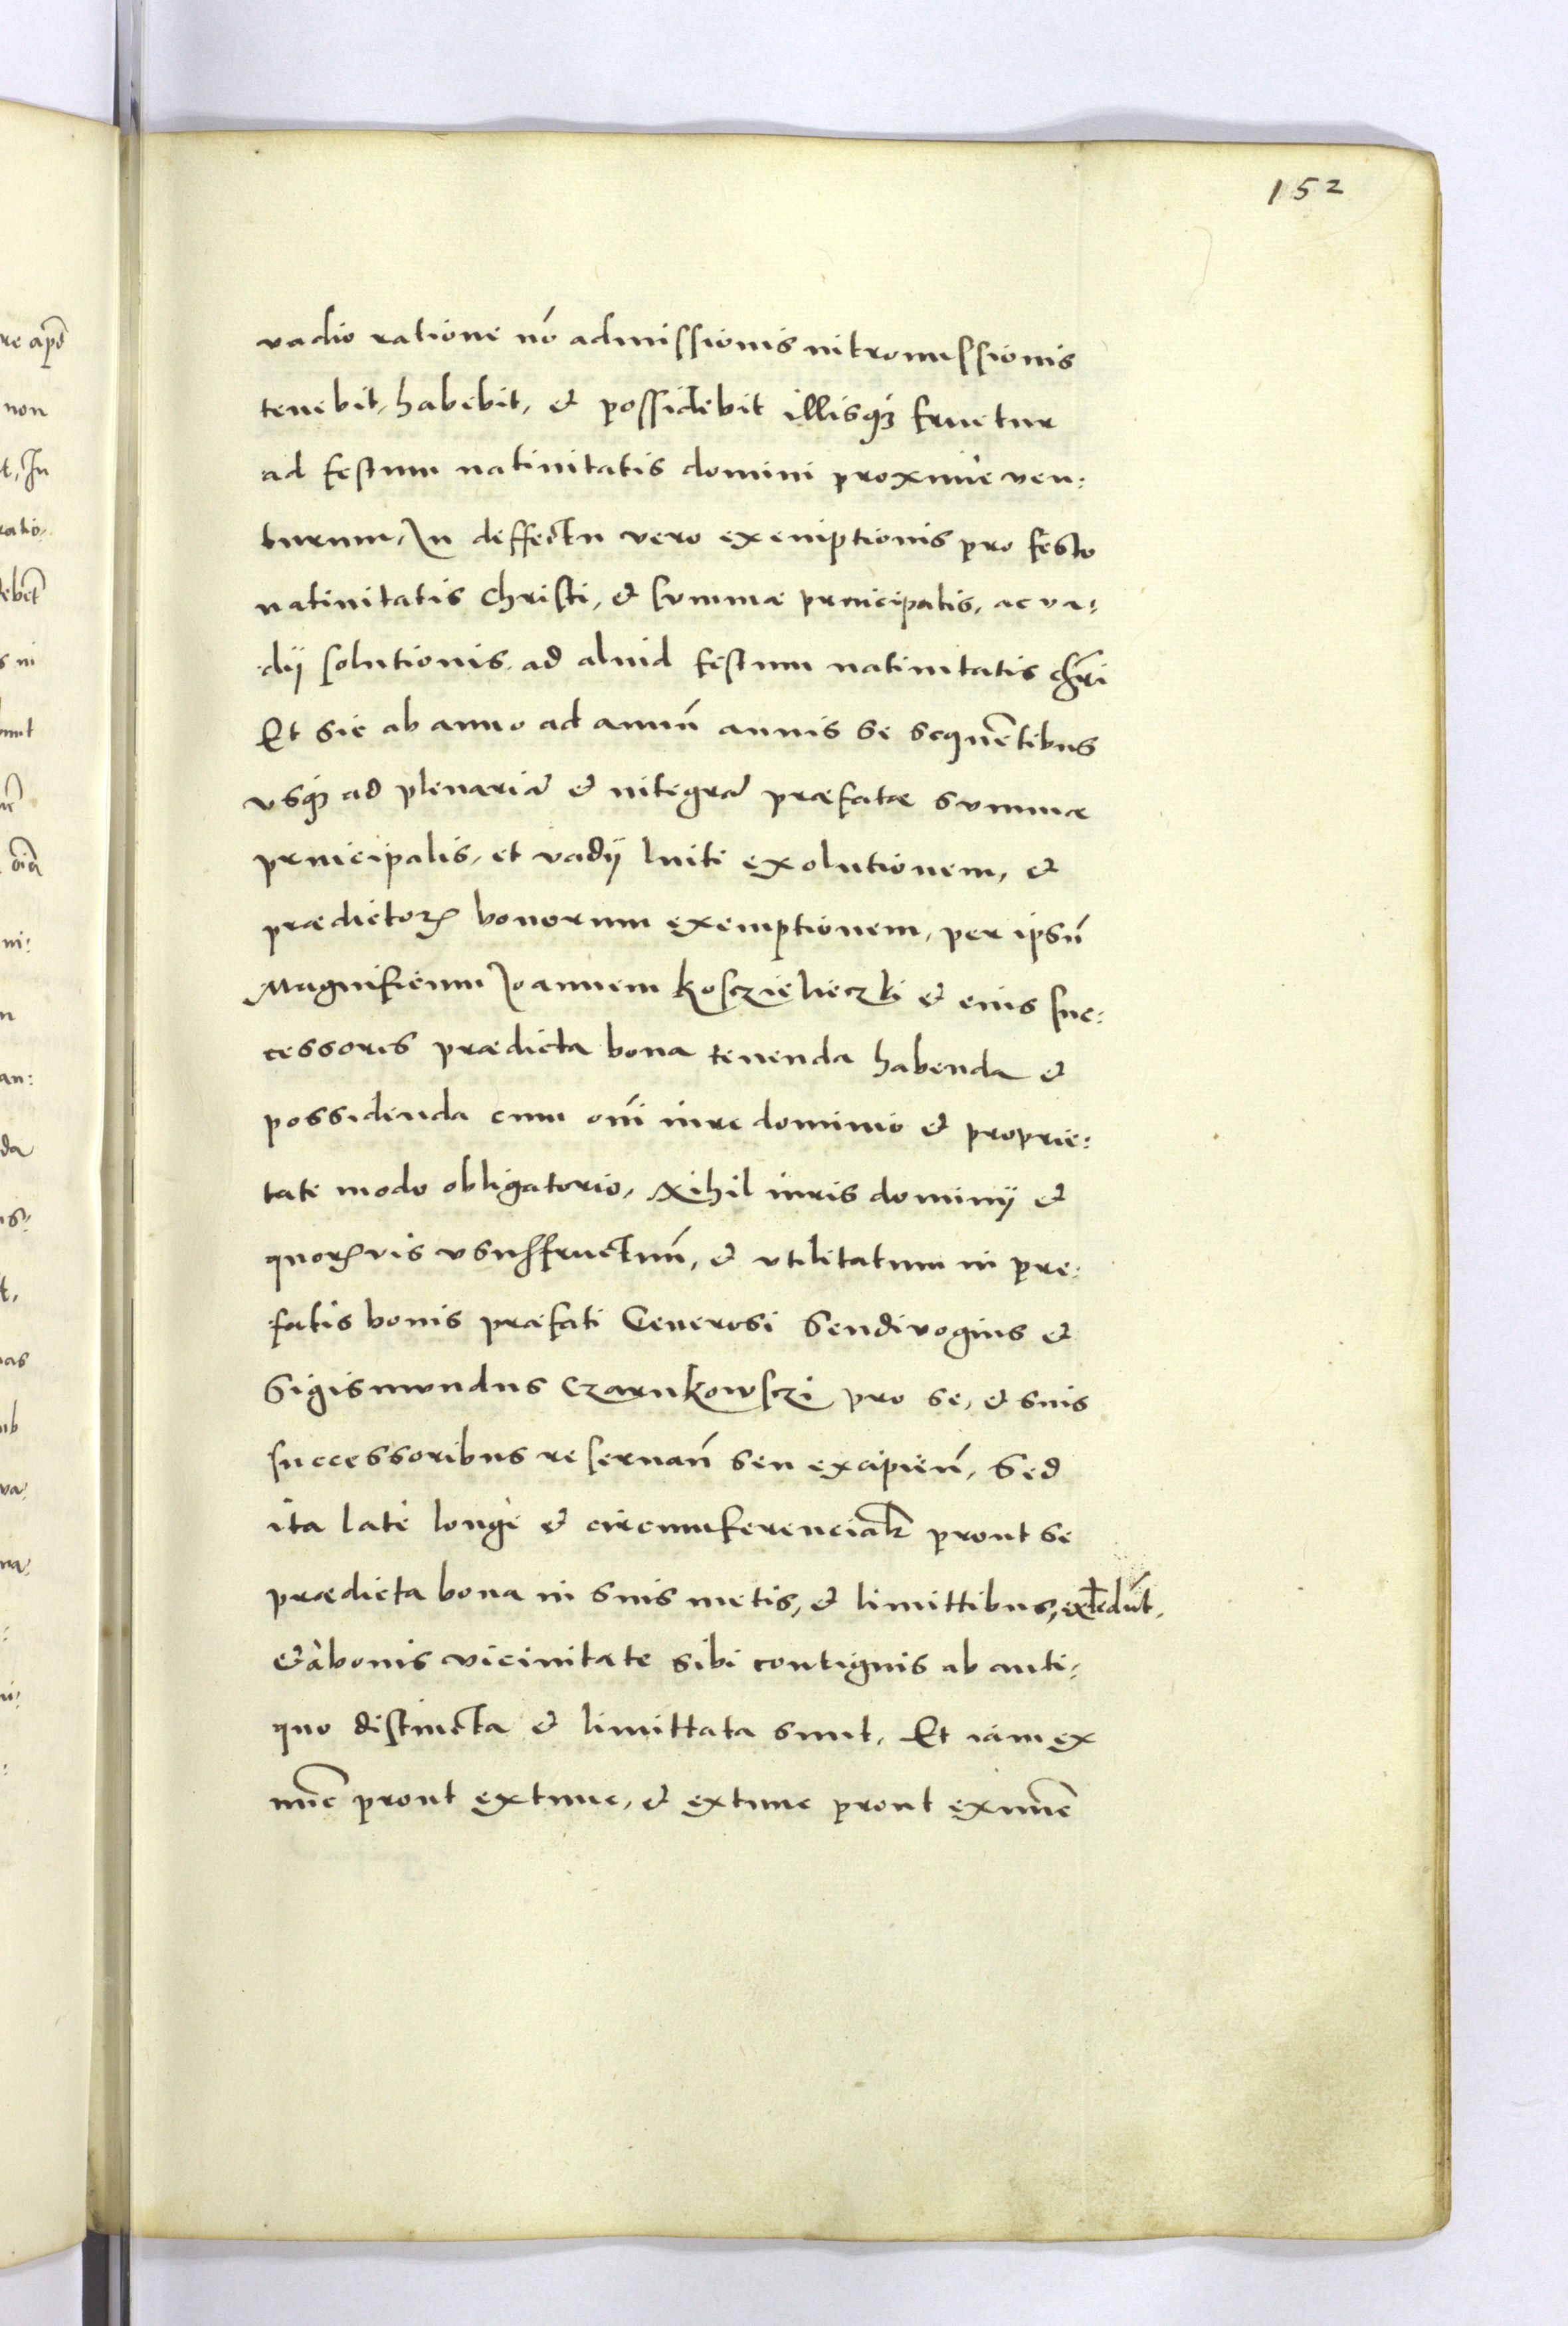 152
vadio ratione nō admissionis intromissionis
tenebit, habebit, et possidebit illisq3 fruetur
ad festum natiuitatis domini proxime ven:
turum, In deffectu vero exemptionis pro festo
natiuitatis Christi, et summæ principalis, ac va:
dij solutionis ad aliud festum natiuitatis chri̅
Et sic ab anno ad annu̅ annis se seque̅tibus
vsq3 ad plenaria̅ et integra̅ præfatæ summæ
principalis, et vadij luiti exolutionem, et
prædictoꝝ bonorum exemptionem, per ipsu̅
Magnificum Joannem Kosczieleczki et eius suc:
cessores prædicta bona tenenda habenda et
possidenda cum om̅i iure dominio et proprie:
tate modo obligatorio, Nihil iuris dominij et
quoꝝvis vsuffructuu̅, et vtilitatum in præ:
fatis bonis præfati Generosi Sendivogius et
Sigismundus Czarnkowsczi pro se, et suis
successoribus reseruan̅ seu excipien̅, Sed
ita late longe et circumferencialr̅ prout se
prædicta bona in suis metis, et limittibus, extedu̅t,
et a bonis vicinitate sibi contiguis ab anti:
quo distincta et limittata sunt, Et iam ex
nu̅c prout extunc, et extunc prout exnu̅c